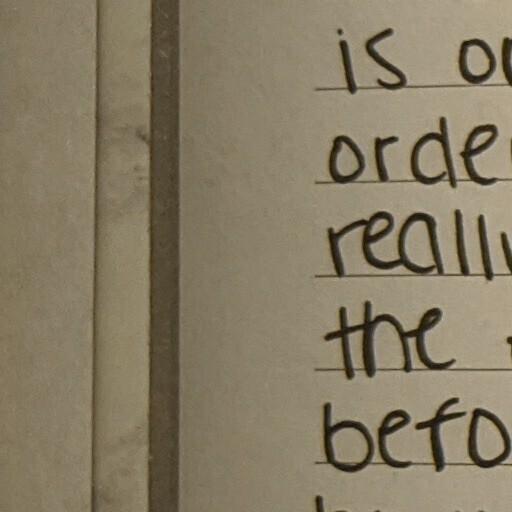 is
orde
reall
the
befo